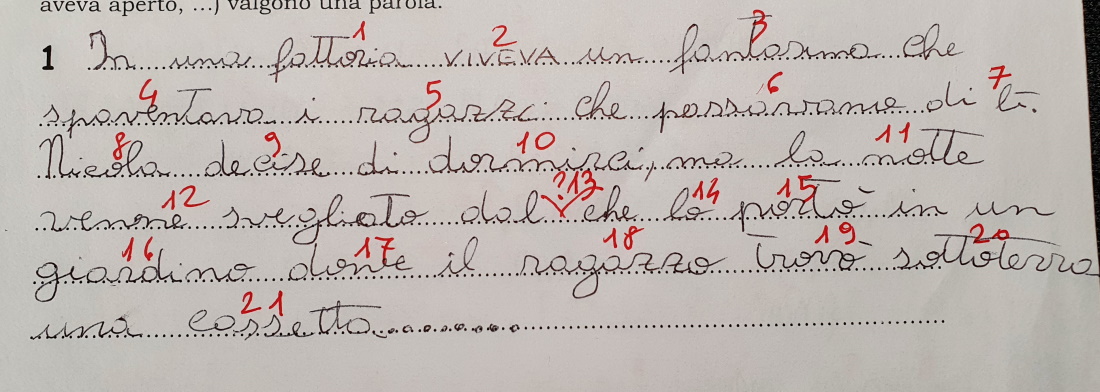 aveva aperto, ...) valgono una parola.
1 2 3
1 In una fattoria VIVEVA un fantasma che
4 5 6 7
spaventava i ragazzi che passavano di lì.
8 9 10 11
Nicola decise di dormirci, ma la notte
12 ?13 14 15
venne svegliato dal che lo portò in un
16 17 18 19 20
giardino donte il ragazzo trovò sottoterra
21
una cassetta..........